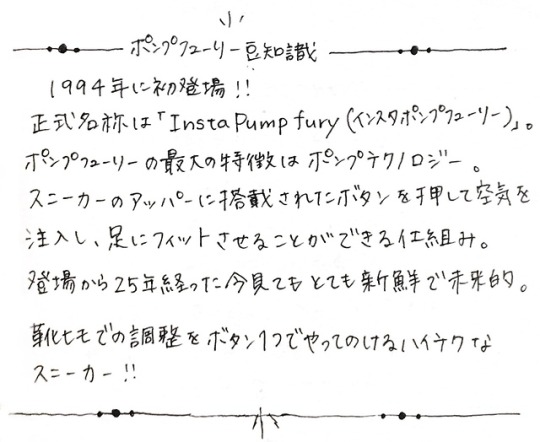 ポンプフューリー豆知識
1994年に初登場!!
正式名称は「Insta Pump fury (インスタポンプフューリー)」。
ポンプフューリーの最大の特徴はポンプテクノロジー。
スニーカーのアッパーに搭載されたボタンを押して空気を
注入し、足にフィットさせることができる仕組み。
登場から25年経った今見てもとても新鮮で未来的。
靴ヒモでの調整をボタン1つでやってのけるハイテクな
スニーカー!!